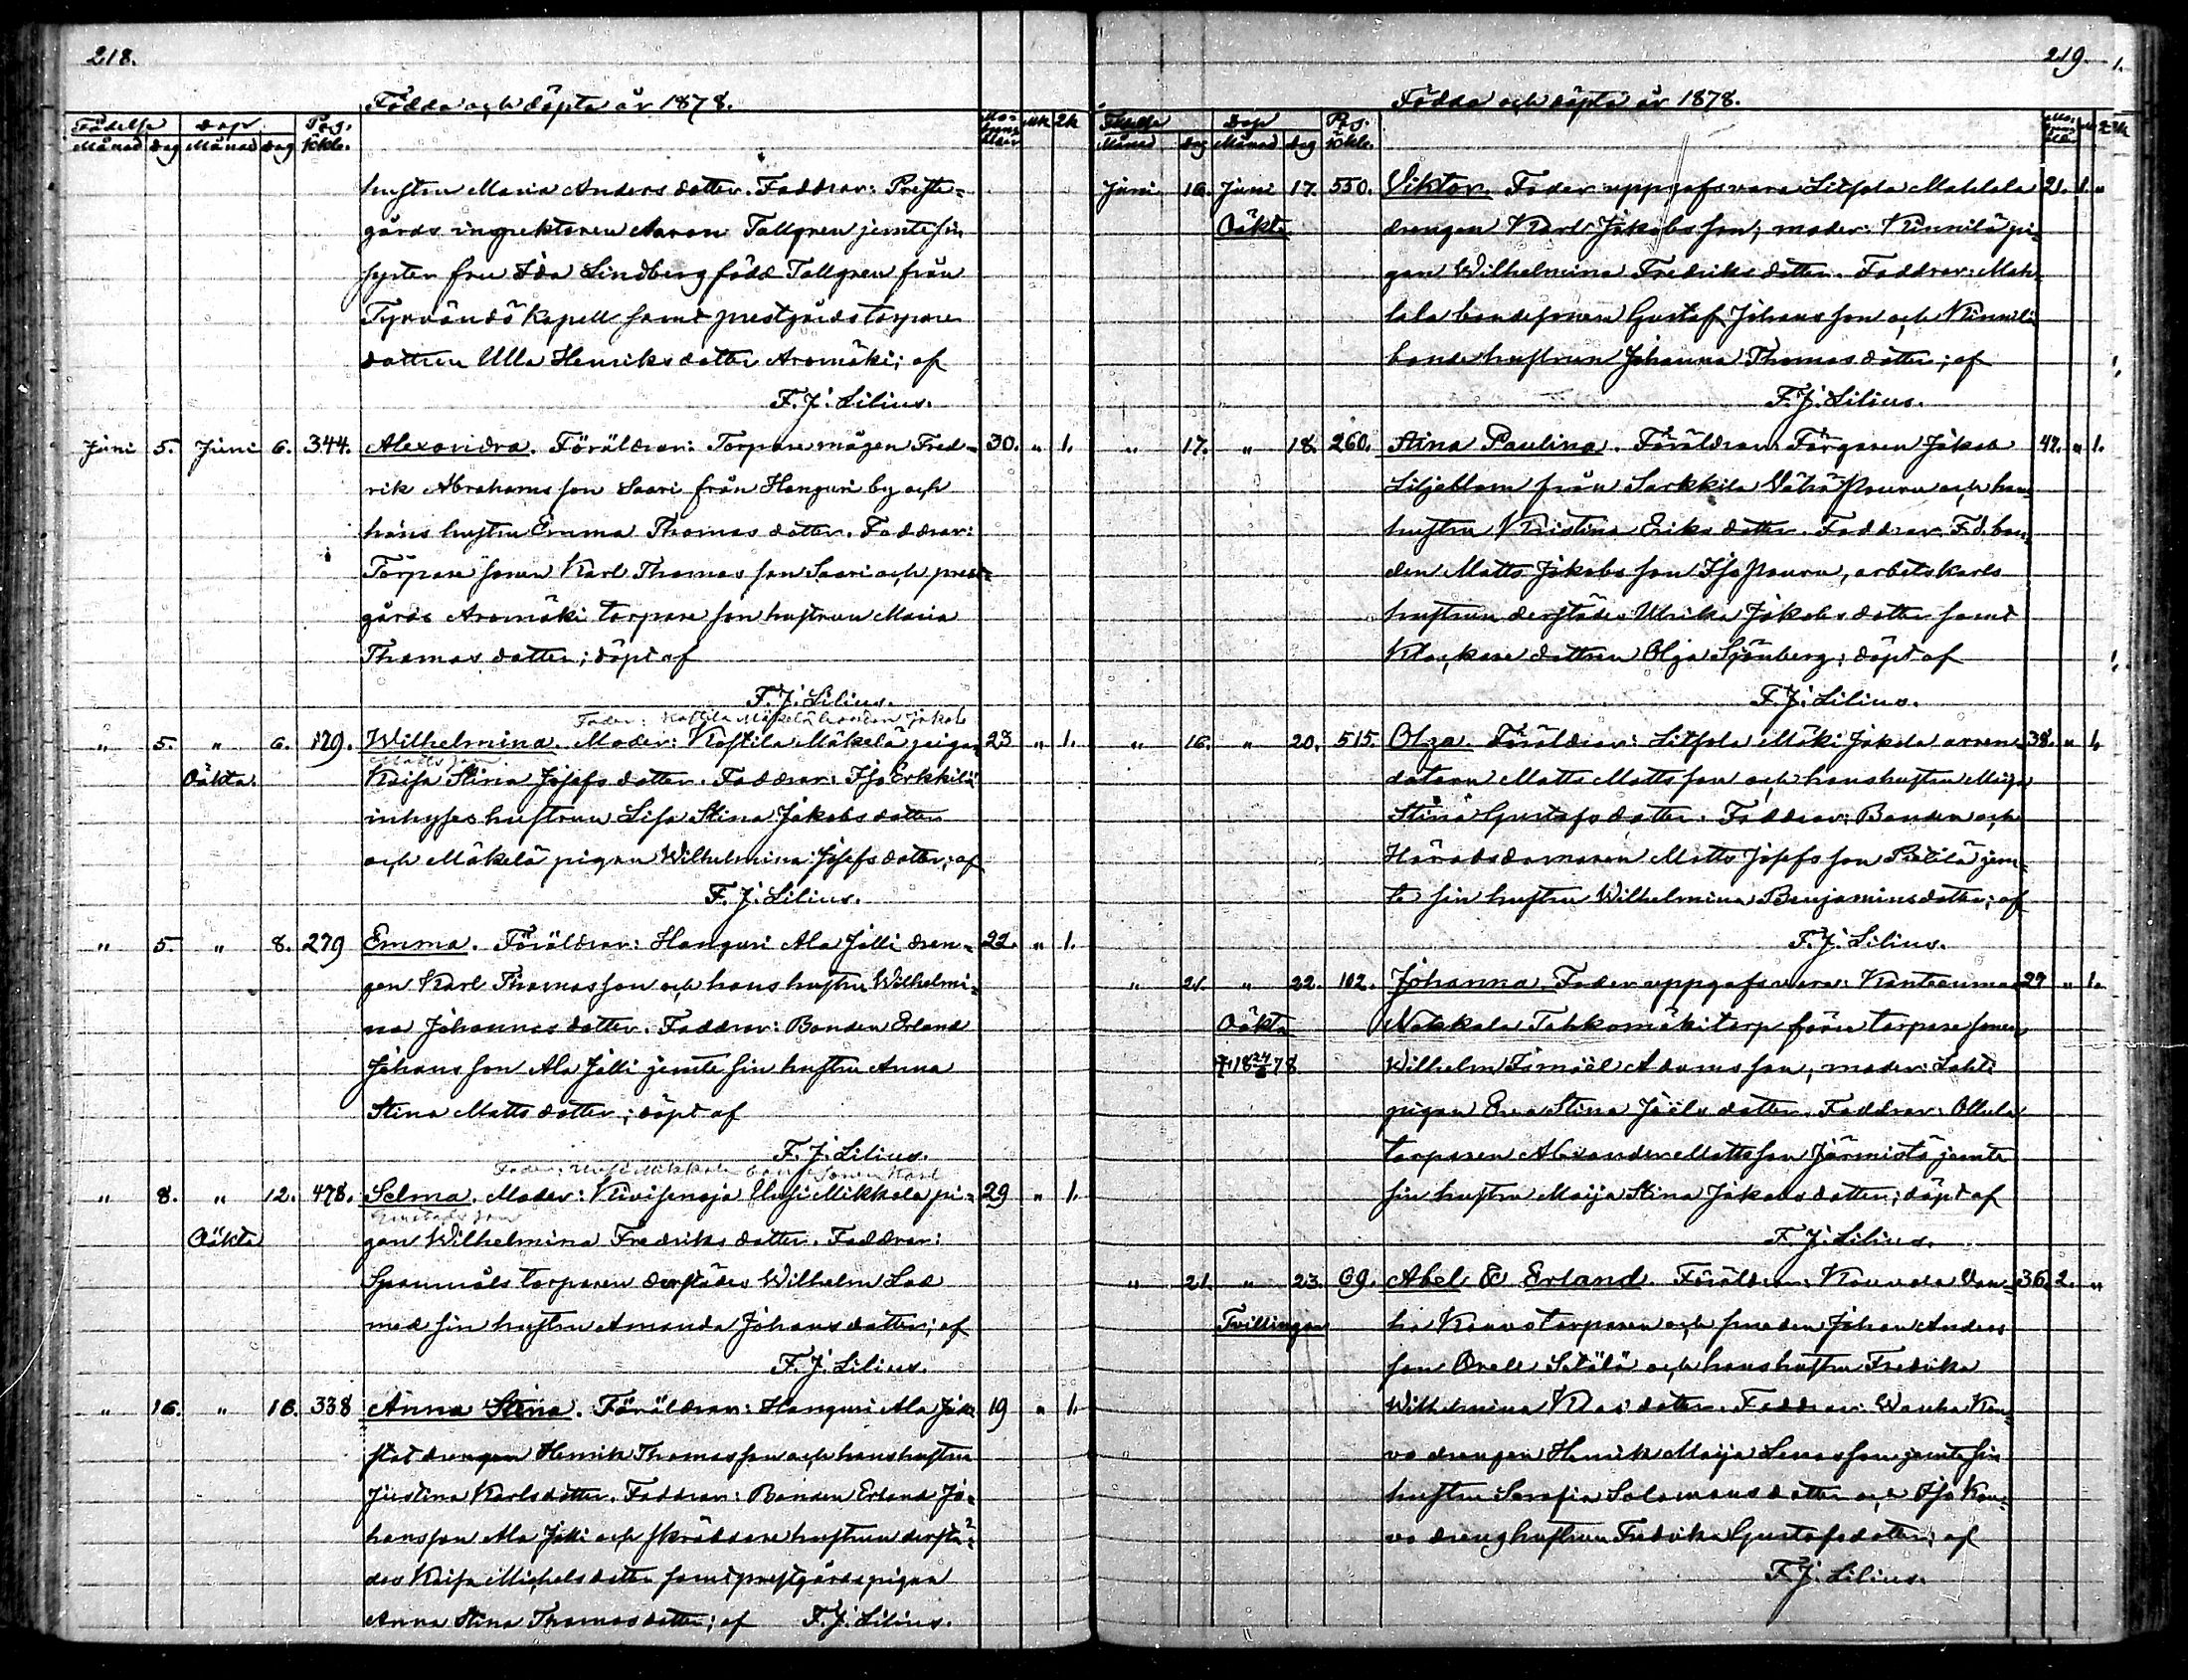 218.
Födda och döpta år 1878.
Födelse Dop Pag. i kkb. Moderns ålder Mk Qk
Månad Dag Månad Dag
hustru Maria Andersdotter. Faddrar: Preste-
gårds inspektoren Aaron Tallgren jemte sin
syster fru Ida Lindberg född Tallgren från
Tyrvändö kapell samt prestgårds torpare
dottren Ulla Henriksdotter Aromäki; af
F. J. Lilius.
Juni 5. Juni 6. 344. Alexandra. Föräldrar: Torparemågen Fred- 30. " 1.
rik Abrahamsson Saari från Hanguri by och
hans hustru Emma Thomasdotter. Faddrar:
Torparesonen Karl Thomasson Saari och prest-
gårds Aromäki torpareson hustrun Maria
Thomasdotter; döpt af
F. J. Lilius.
Fader: Koftila Mäkelä bonden Jakob
" 5. " 6. 179. Wilhelmina. Moder: Koftila Mäkelä pigan 23 " 1.
Mattsson.
Oäkta. Kaisa Stina Josefsdotter. Faddrar: Iso Erkkilä
inhyses hustrun Lisa Stina Jakobsdotter
och Mäkelä pigan Wilhelmina Josefsdotter; af
F. J. Lilius.
" 5. " 8. 279 Emma. Föräldrar: Hanguri Ala Jälli dren- 22. " 1.
gen Karl Thomasson och hans hustru Wilhelmi-
na Johannesdotter. Faddrar: Bonden Erland
Johansson Ala Jälli jemte sin hustru Anna
Stina Mattsdotter; döpt af
F. J. Lilius.
Fader: Uusi Mikkola bondesonen Karl
" 8. " 12. 478. Selma. Moder: Kivisenoja Uusi Mikkola pi- 29 " 1.
Gustafsson
Oäkta gan Wilhelmina Fredriksdotter. Faddrar:
Spannmåls torparen derstädes Wilhelm Lad
med sin hustru Amanda Johansdotter; af
F. J. Lilius.
" 16. " 16. 338 Anna Stina. Föräldrar: Hanguri Ala Jälli 19 " 1.
statdrengen Henrik Thomasson och hans hustru
Justina Karlsdotter. Faddrar: Bonden Erland Jo-
hansson Ala Jälli och skräddare hustrun derstä-
des Kaisa Michelsdotter samt prestgårdspigan
Anna Stina Thomasdotter; af F. J. Lilius.
219.
Födda och döpta år 1878.
Födelse Dop Pag. i kkb. Moderns ålder Mk Qk
Månad Dag Månad Dag
Juni 16. Juni 17. 550. Viktor. Fader uppgafs vara Litsola Mahlala 21. 1. "
Oäkta drengen Karl Jakobsson; moder: Kinnilä pi-
gan Wilhelmina Fredriksdotter. Faddrar: Mah-
lala bondesonen Gustaf Johansson och Kinnilä
bondehustrun Johanna Thomasdotter; af
F. J. Lilius.
" 17. " 18. 260. Stina Paulina. Föräldrar: Färgaren Jakob 42. " 1.
Liljeblom från Sarkkila Vähä Pouru och hans
hustru Kristina Eriksdotter. Faddrar: F.d. bon-
den Matts Jakobsson Iso Pouru, arbetskarls
hustrun derstädes Ulrika Jakobsdotter samt
Klockare dottren Olga Sjönberg; döpt af
F. J. Lilius.
" 16. " 20. 515. Olga. Föräldrar: Litsola Mäki Jakola arren- 38. " 1.
datorn Matts Mattsson och hans hustru Maija
Stina Gustafsdotter. Faddrar: Bonden och
Häradsdomaren Matts Josefsson Pietilä jem-
te sin hustru Wilhelmina Benjaminsdotter; af
F. J. Lilius.
" 21. " 22. 102. Johanna. Fader uppgafs vara: Kanteenmaa 29 " 1.
Oäkta Nokkala Tahkomäki torp förre torparesonen
† 18 24/8 78 Wilhelm Ismaël Adamsson; moder: Lahti
pigan Eva Stina Joëlsdotter. Faddrar: Ollila
torparen Alexander Mattsson Järnistö jemte
sin hustru Maija Stina Jakobsdotter; döpt af
F. J. Lilius.
" 21. " 23. 69. Abel & Erland. Föräldrar: Kouvola Van- 36. 2. "
Tvillingar ha Kouvo torparen och smeden Johan Anders
son Orell Sätälä och hans hustru Fredrika
Wilhelmina Klasdotter. Faddrar: Wanha Kou-
vo drengen Henrik Maija Lenasson jemte sin
hustru Serafia Salomonsdotter och Iso Kou-
vo drenghustrun Fredrika Gustafsdotter; af
F. J. Lilius.